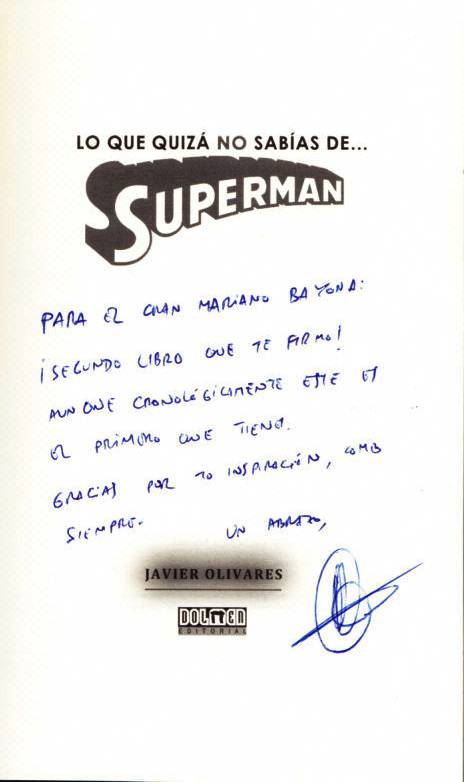 LO QUE QUIZÁ NO SABÍAS DE...
SUPERMAN
PARA EL GRAN MARIANO BAYONA:
¡SEGUNDO LIBRO QUE TE FIRMO!
AUNQUE CRONOLÓGICAMENTE ESTE ES
EL PRIMERO QUE TIENES.
GRACIAS POR TU INSPIRACIÓN, COMO
SIEMPRE.
UN ABRAZO,
JAVIER OLIVARES
DOLMEN
EDITORIAL